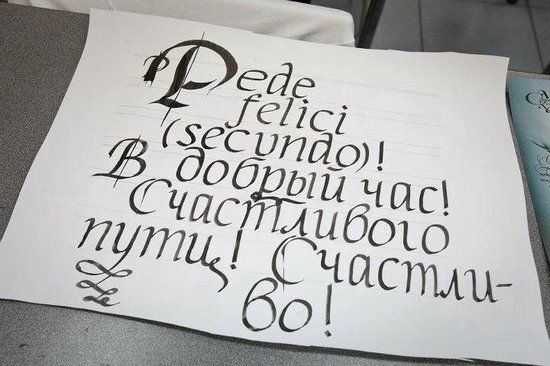 Pede
felici
(secundo)!
В добрый час!
Счастливого
пути! Счастли-
во!